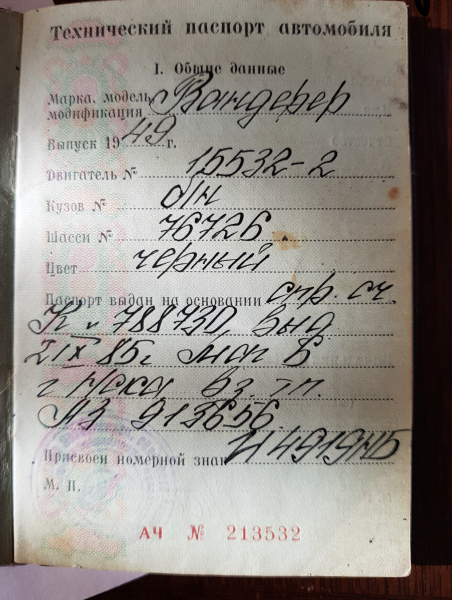 Технический паспорт автомобиля
I. Общие данные
Марка, модель, Вандерер
модификация
Выпуск 1949 г.
Двигатель № 15532-2
Кузов № б/н
Шасси № 76726.
Цвет черный
Паспорт выдан на основании спр. сч.
788730, выд
2 IX 85г маг 6
г Н/ска вз. тп.
АЗ 913656.
Присвоен номерной знак И4919НБ
М. П.
АЧ № 213532